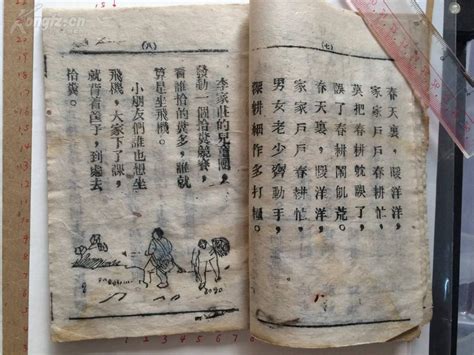 (七)
春天裏，暖洋洋，
家家戶戶春耕忙，
莫把春耕躭誤了，
誤了春耕鬧飢荒。
春天裏，暖洋洋，
家家戶戶春耕忙，
男女老少齊動手，
深耕細作多打糧。
(八)
李家莊的兒童團，
發動一個拾糞競賽，
看誰拾的糞多，誰就
算是坐飛機。
小朋友們誰也想坐
飛機，大家下了課，
就背着筐子，到處去
拾糞。